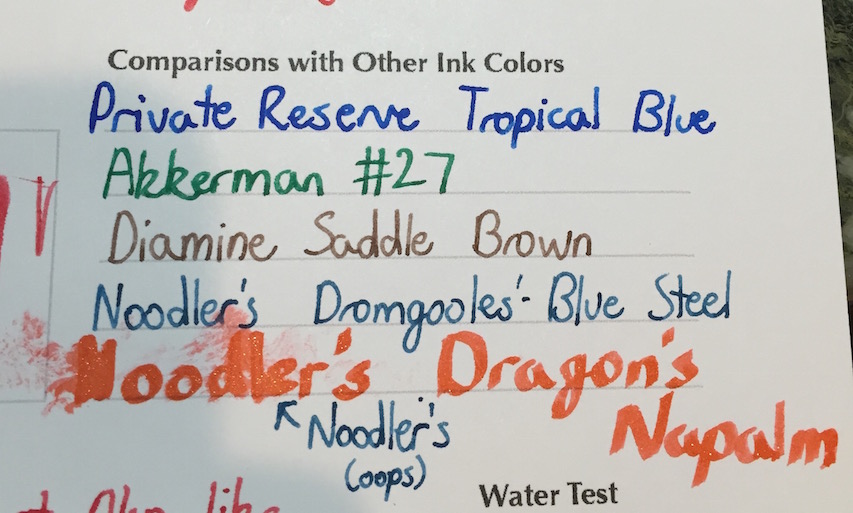 Comparisons with Other Ink Colors
Private Reserve Tropical Blue
Akkerman #27
Diamine Saddle Brown
Noodler's Dromgooles'- Blue Steel
Noodler's Dragon's
Napalm
↖ Noodler's
(oops)
Water Test
like